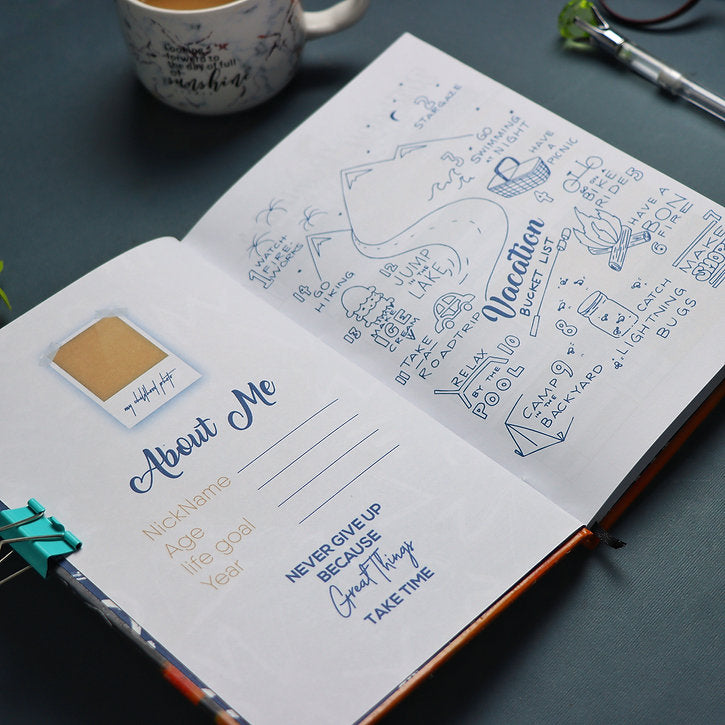 Looking
forward to
the day of full
of
sunshine
my childhood photo
About Me
NickName
Age
life goal
Year
NEVER GIVE UP
BECAUSE
Great Things
TAKE TIME
2
STARGAZE
3
GO
SWIMMING
at NIGHT
HAVE
A
PICNIC
4
GO ON A
BIKE
RIDE 5
HAVE A
BON
FIRE
6
MAKE
Vacation
BUCKET LIST
1 WATCH
FIRE-
WORKS
14 GO
HIKING
13 MAKE
ICE
CREAM
12 JUMP
IN THE
LAKE
11 TAKE
A
ROADTRIP
RELAX 10
BY THE
POOL
CAMP 9
IN THE
BACKYARD
8 CATCH
LIGHTNING
BUGS